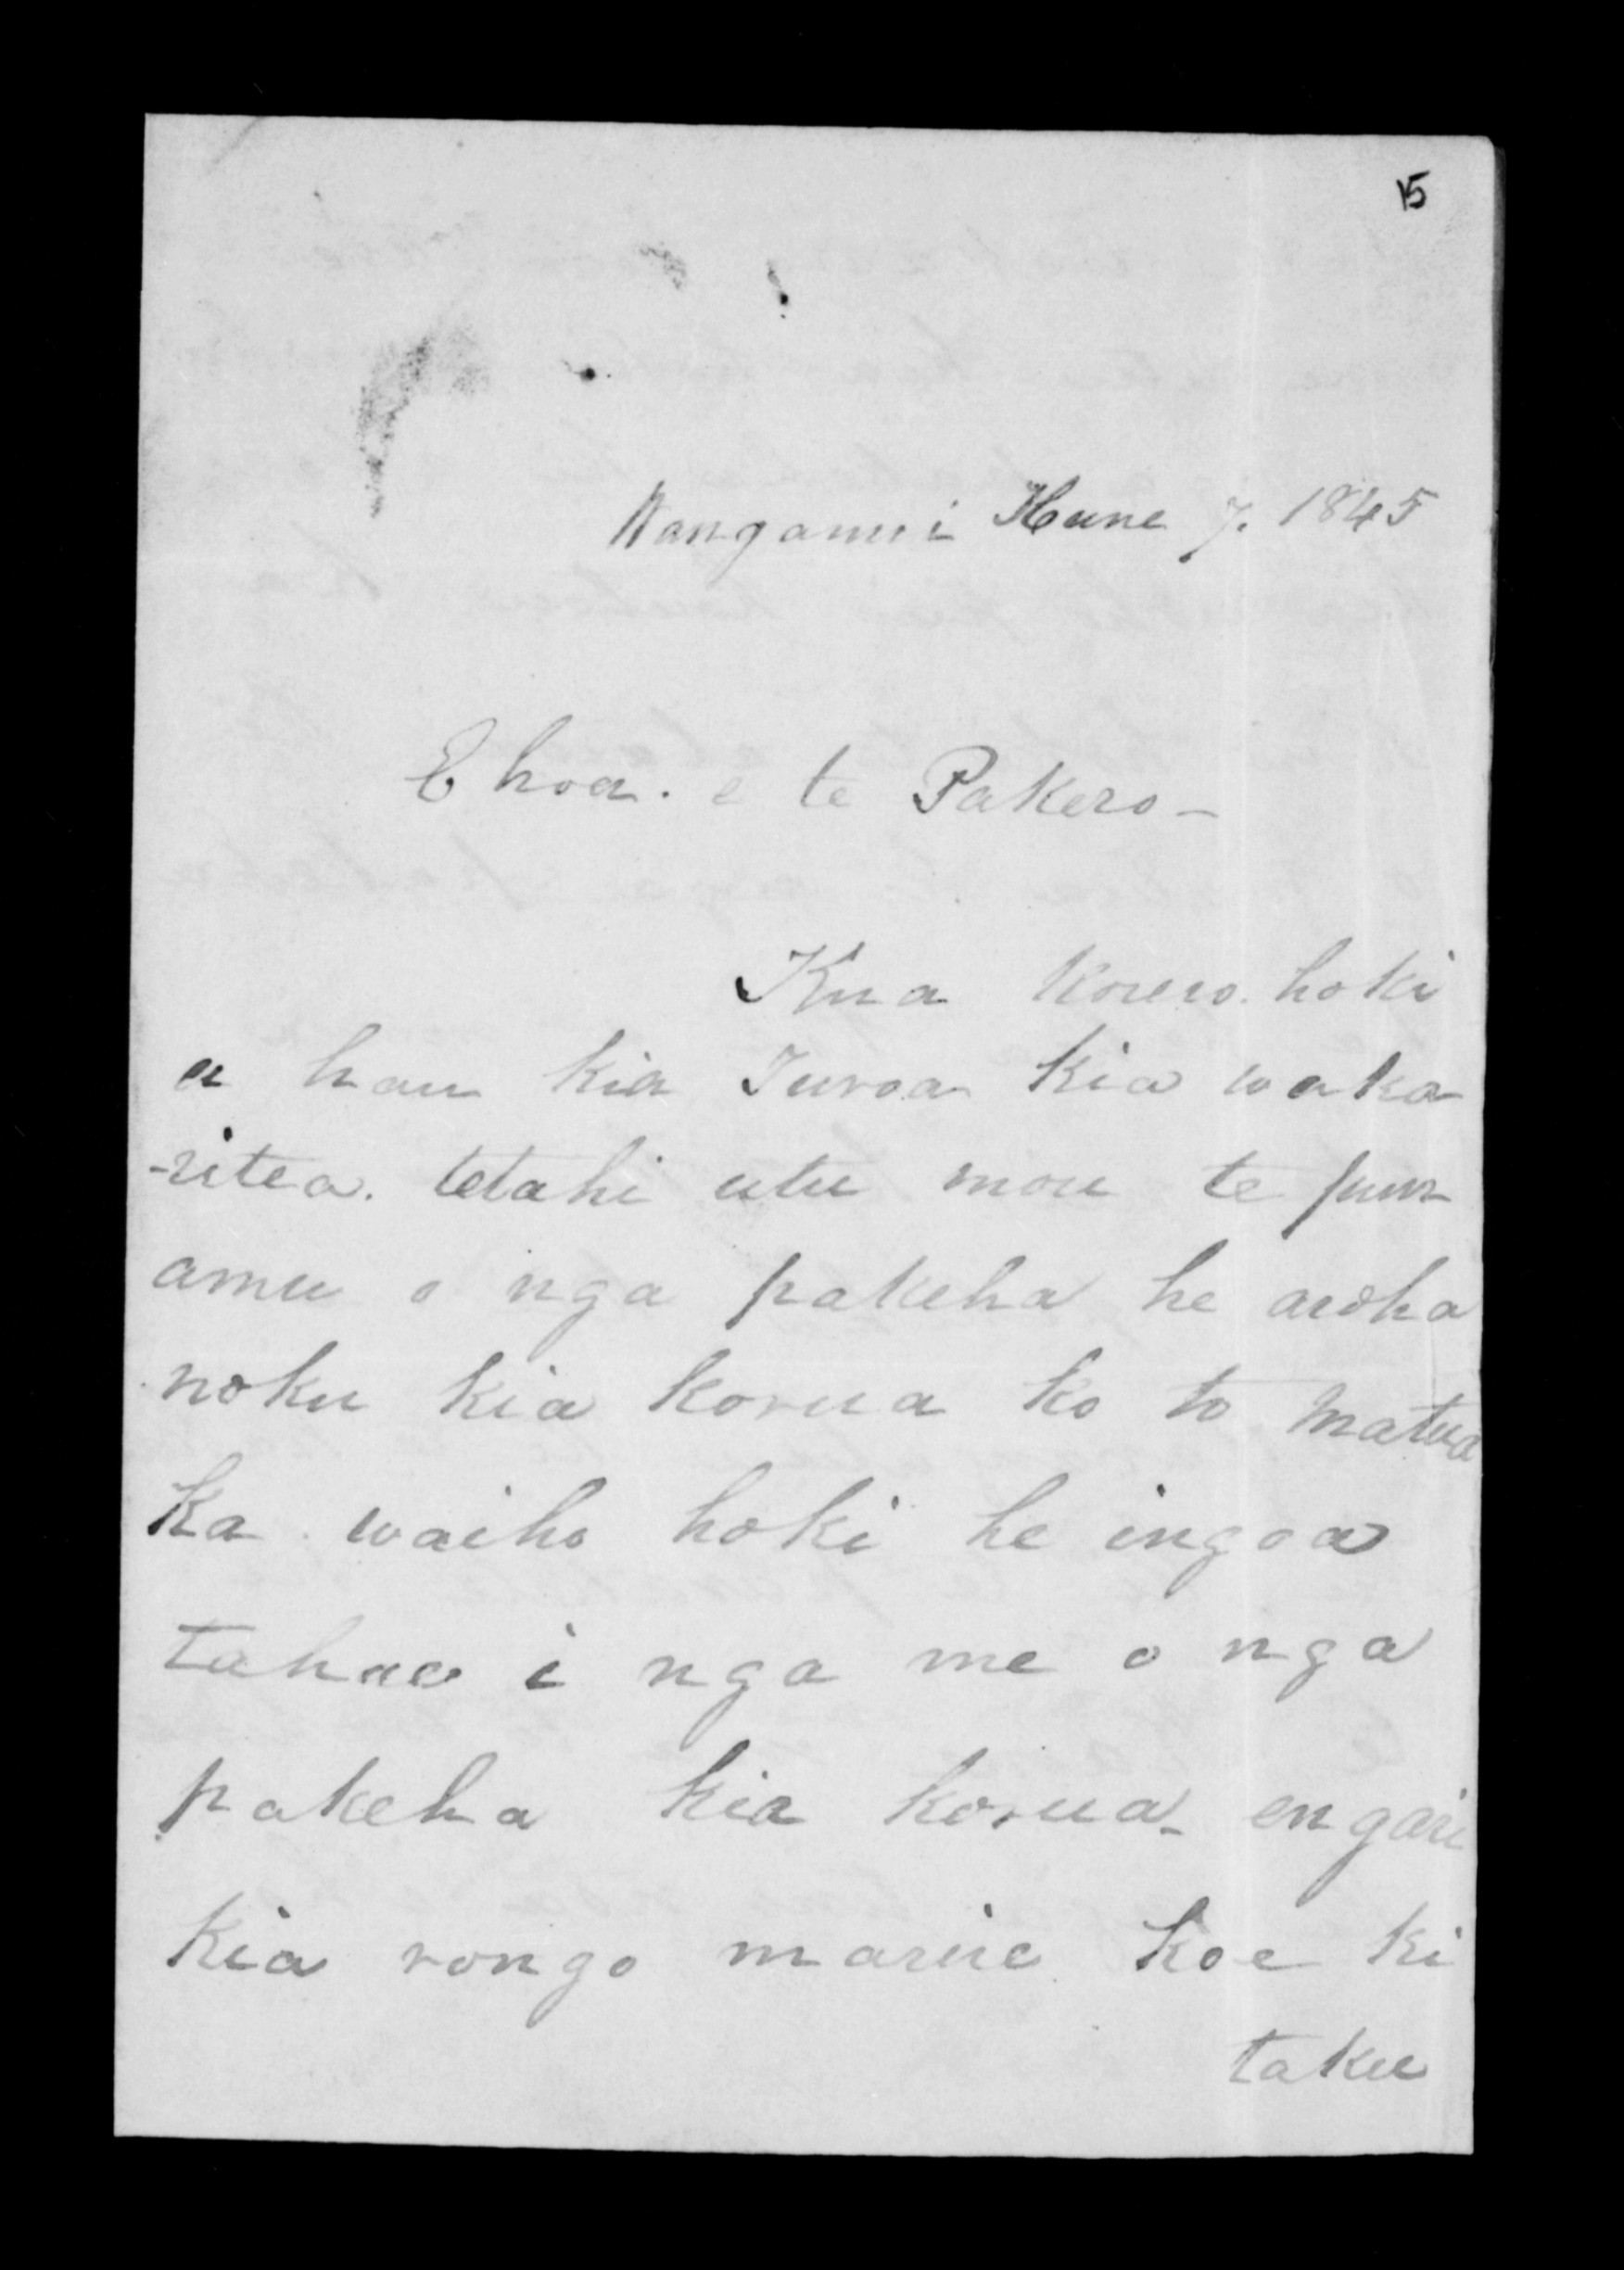 15
Wanganui Hune 7. 1845
E hoa. e te Pakero -
Kua korero. hoki
a hau kia Turoa kia waka
-ritea. tetahi utu mou te pun
amu o nga pakeha he aroha
noku kia korua ko to Matua
ka waiho hoki he ingoa
tahae i nga me o nga
pakeha kia korua - engari
kia rongo marire koe ki
taku